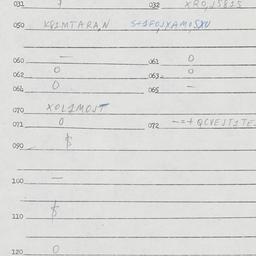 031 032 XRO,J5815
050 KRIMTARAN S-1FOJXAMOSXU
060 — 061 0
062 0 063 0
064 0 065 —
070 XOLIMOJT
071 0 072 -=+QCVEJTITE
090 $
100 —
110 $
120 0